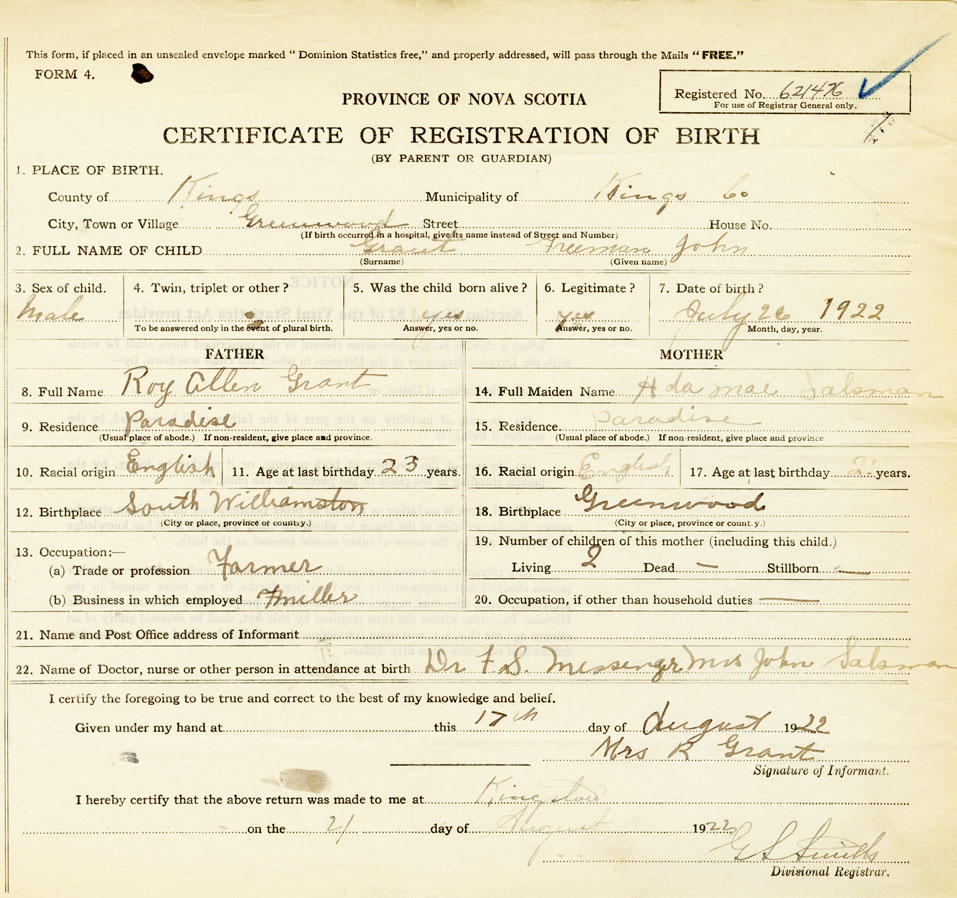 This form, if placed in an unsealed envelope marked " Dominion Statistics free," and properly addressed, will pass through the Mails "FREE."
FORM 4.
Registered No. 621476
For use of Registrar General only.
PROVINCE OF NOVA SCOTIA
CERTIFICATE OF REGISTRATION OF BIRTH
(BY PARENT OR GUARDIAN)
1. PLACE OF BIRTH.
County of Kings Municipality of Kings Co
City, Town or Village Greenwood Street House No.
(If birth occurred in a hospital, give its name instead of Street and Number)
2. FULL NAME OF CHILD Grant Freeman John
(Surname) (Given name)
3. Sex of child. 4. Twin, triplet or other? 5. Was the child born alive? 6. Legitimate? 7. Date of birth?
Male yes yes July 26 1922
To be answered only in the event of plural birth. Answer, yes or no. Answer, yes or no. Month, day, year.
FATHER MOTHER
8. Full Name Roy Allen Grant 14. Full Maiden Name Ada Mae Salsman
9. Residence Paradise 15. Residence. Paradise
(Usual place of abode.) If non-resident, give place and province. (Usual place of abode.) If non-resident, give place and province
10. Racial origin English 11. Age at last birthday. 23 years. 16. Racial origin English 17. Age at last birthday years.
12. Birthplace South Williamston 18. Birthplace Greenwood
(City or place, province or country.) (City or place, province or count.y.)
13. Occupation:— 19. Number of children of this mother (including this child.)
(a) Trade or profession Farmer Living 2 Dead – Stillborn —
(b) Business in which employed miller 20. Occupation, if other than household duties —
21. Name and Post Office address of Informant
22. Name of Doctor, nurse or other person in attendance at birth Dr F. S. Messenger Mrs John Salsman
I certify the foregoing to be true and correct to the best of my knowledge and belief.
Given under my hand at this 17th day of August 1922
Mrs R Grant
Signature of Informant.
I hereby certify that the above return was made to me at Kingston
on the 21 day of August 1922
G S Smith
Divisional Registrar.